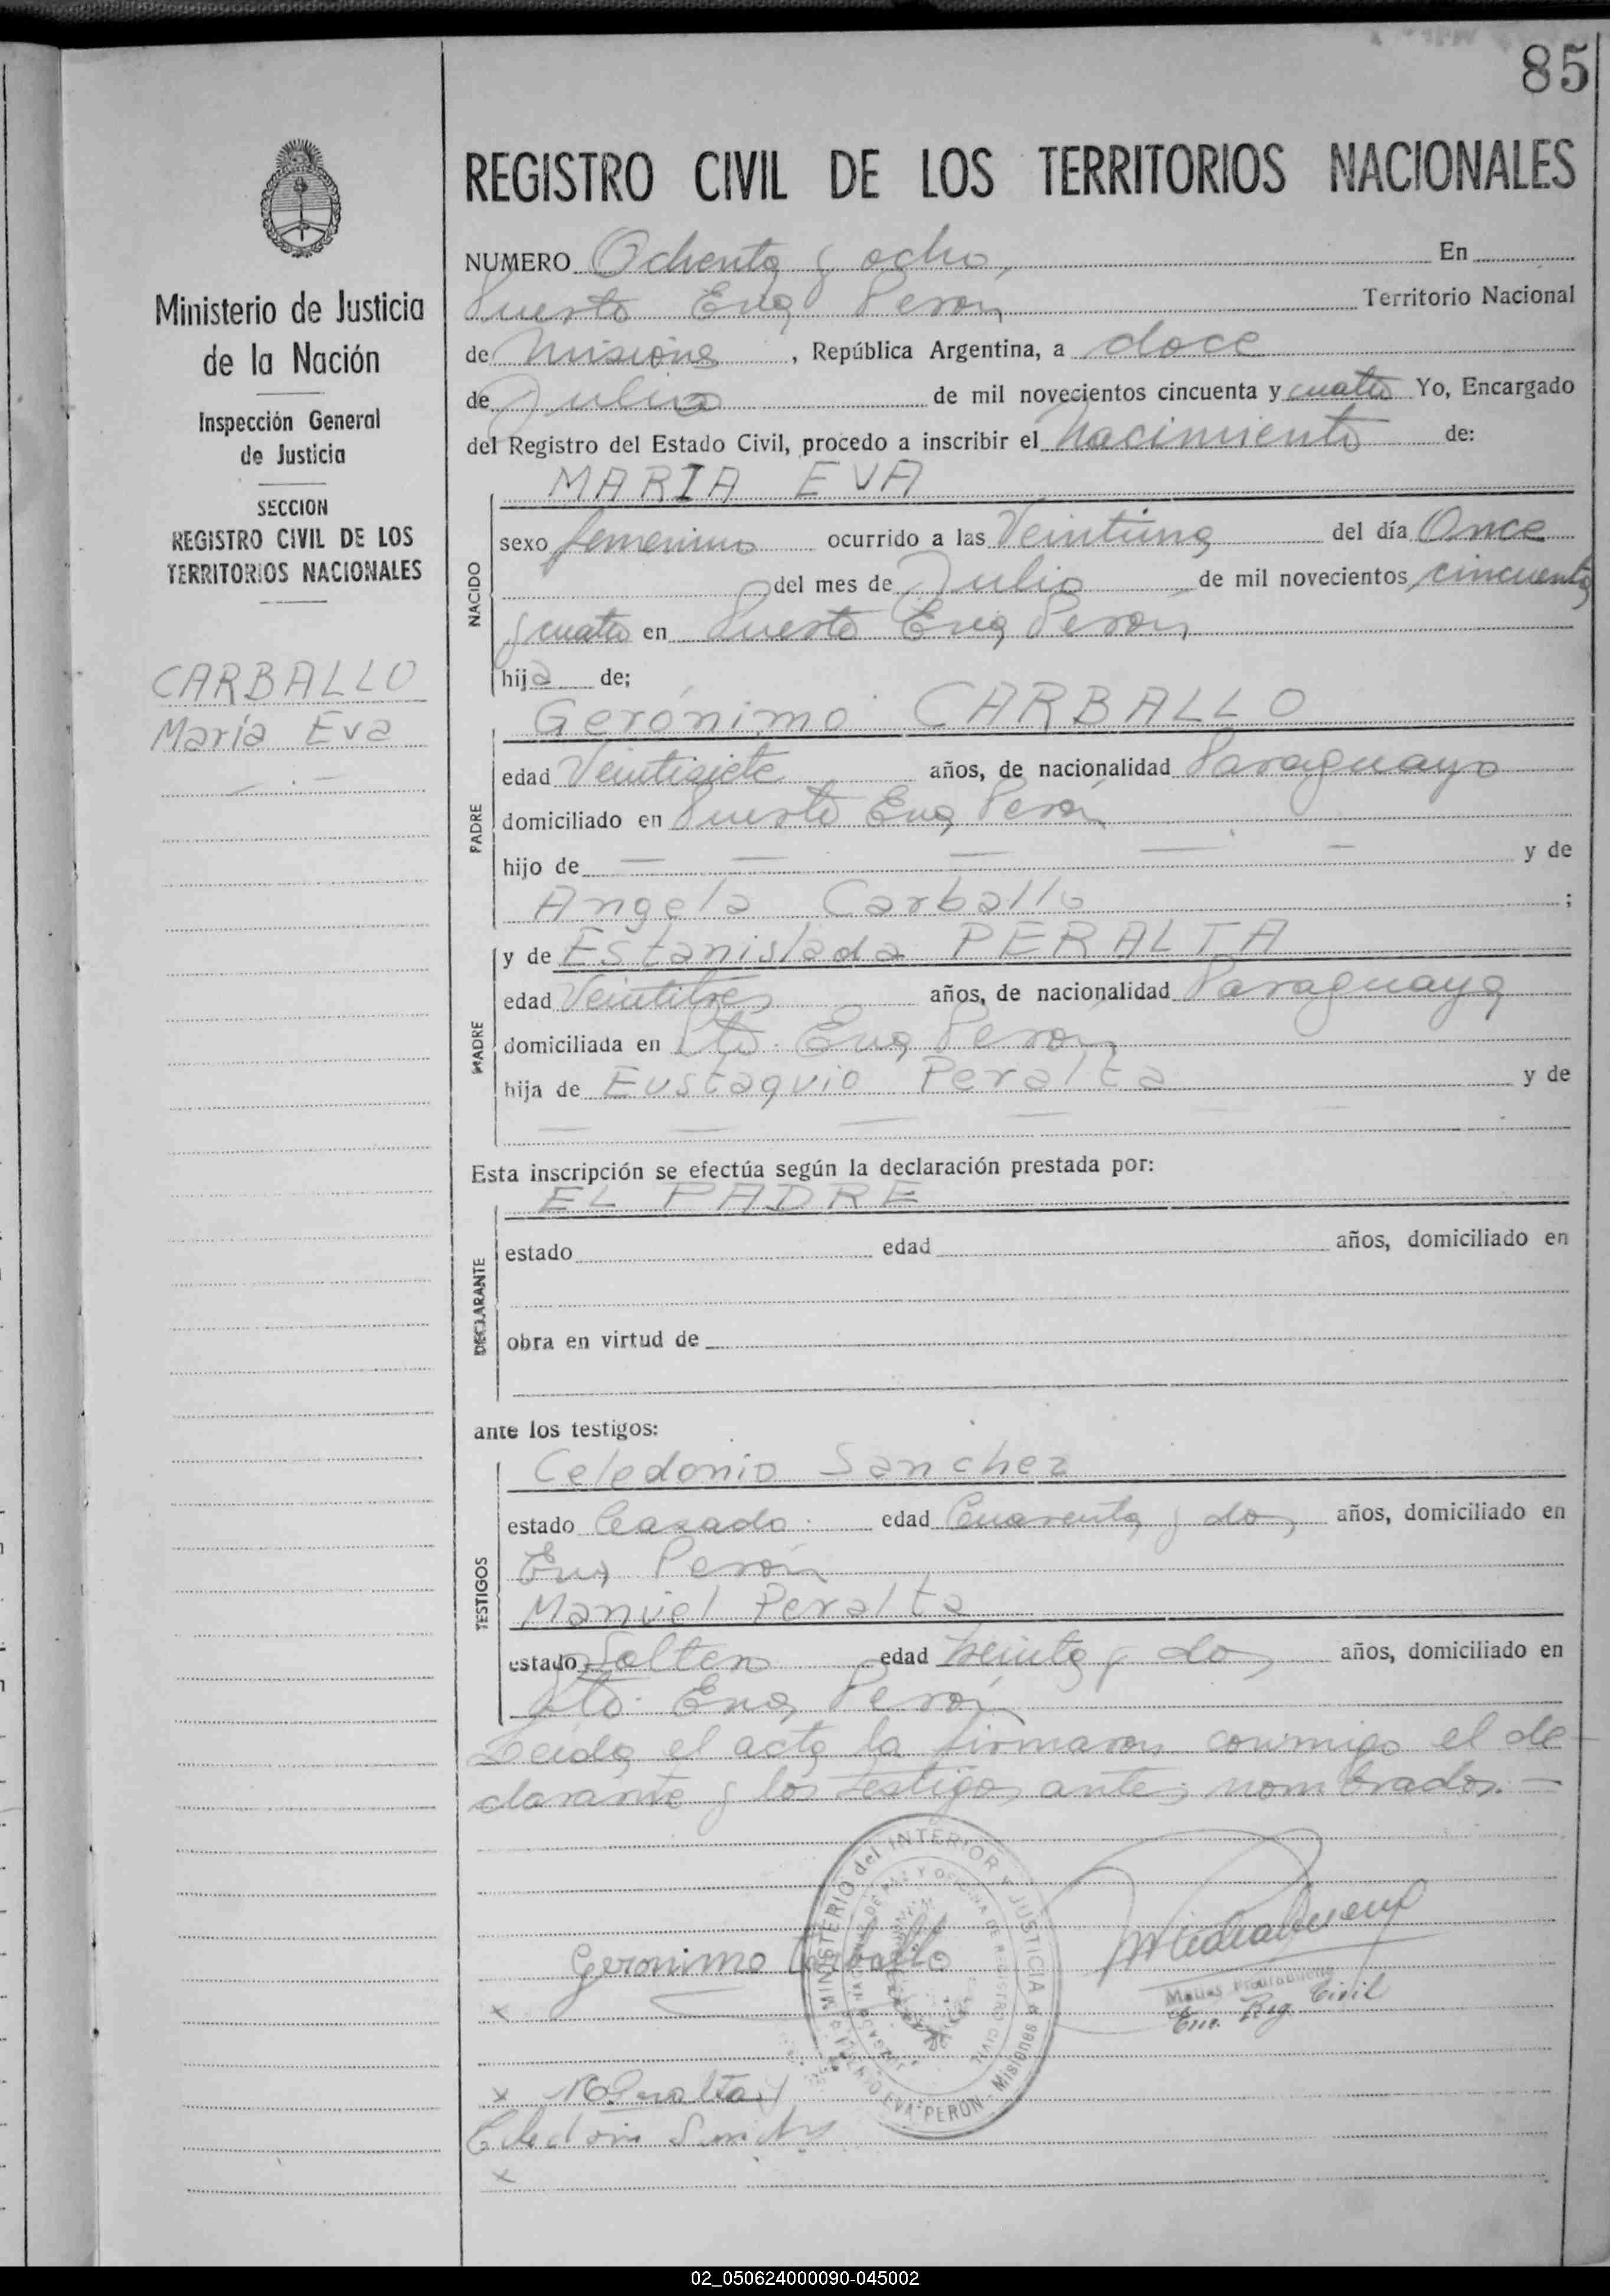 85
REGISTRO CIVIL DE LOS TERRITORIOS NACIONALES
Ministerio de Justicia
de la Nación
Inspección General
de Justicia
SECCION
REGISTRO CIVIL DE LOS
TERRITORIOS NACIONALES
CARBALLO
María Eva
NUMERO Ochenta y ocho, En
Puerto Eva Perón Territorio Nacional
de Misiones, República Argentina, a doce
de Julio de mil novecientos cincuenta y cuatro Yo, Encargado
del Registro del Estado Civil, procedo a inscribir el Nacimiento de:
NACIDO
MARIA EVA
sexo femenino ocurrido a las Veintiuna del día Once
del mes de Julio de mil novecientos cincuenta
y cuatro en Puerto Eva Perón
hija de;
PADRE
Gerónimo CARBALLO
edad Veintisiete años, de nacionalidad Paraguayo
domiciliado en Puerto Eva Perón
hijo de — — — — — y de
Angela Carballo ;
MADRE
y de Estanislada PERALTA
edad Veintitres años, de nacionalidad Paraguaya
domiciliada en Pto. Eva Perón
hija de Eustaquio Peralta y de
— — — —
Esta inscripción se efectúa según la declaración prestada por:
DECLARANTE
EL PADRE
estado edad años, domiciliado en
obra en virtud de
ante los testigos:
TESTIGOS
Celedonio Sanchez
estado Casado edad Cuarenta y dos años, domiciliado en
Eva Perón
Manuel Peralta
estado Soltero edad treinta y dos años, domiciliado en
Pto. Eva Perón
Leida el acta la firmaron conmigo el de-
clarante y los testigos antes nombrados.—
MINISTERIO del INTERIOR y JUSTICIA
EVA PERON - Misiones
Geronimo Carballo
Matias Piedrabuena
Enc. Reg. Civil
x
x M Peralta
Celedonio Sanchez
x
02_050624000090-045002